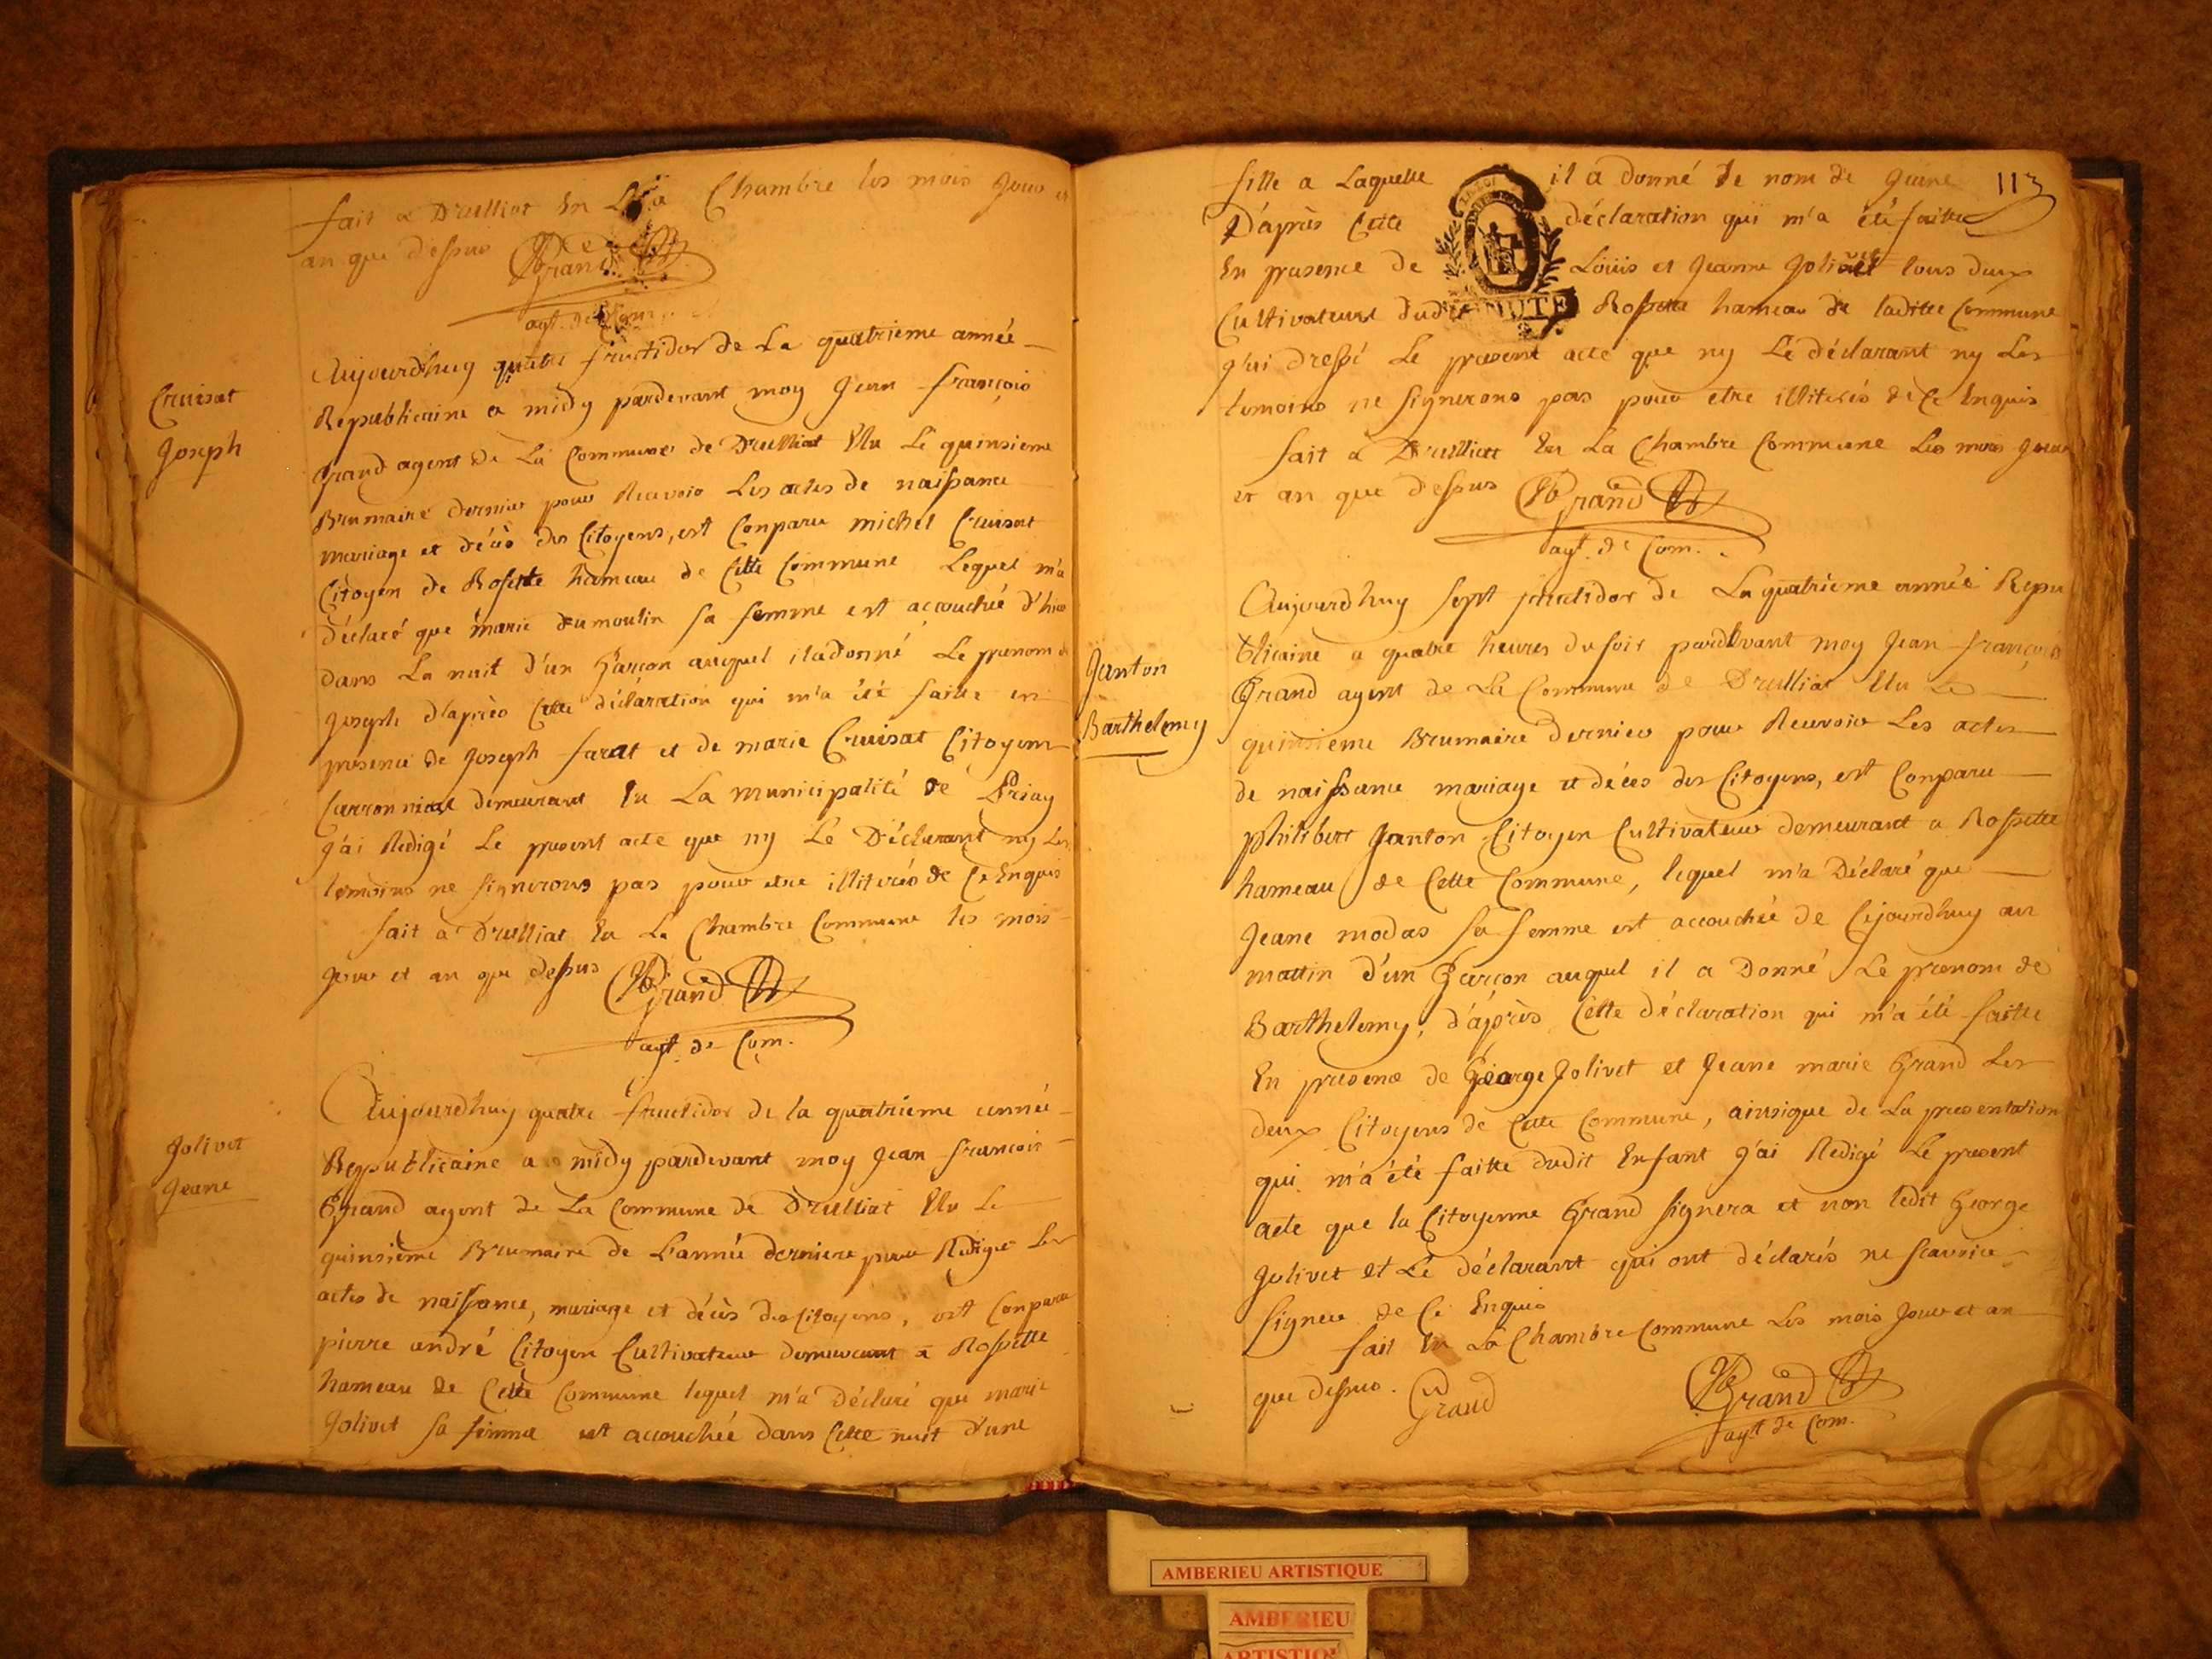 fait a Drulliat En La Chambre les mois Jour et
an que dessus Grand
agt. de Com.
Cruisat
Joseph
Aujourdhuy quatre fructidor de La quatrieme année
Republicaine a midy pardevant moy Jean françois
Grand agent de La Commune de Drulliat Elu Le quinsieme
Brumaire dernier pour Recevoir Les actes de naissance
mariage et décès des Citoyens, est Conparu michel Cruisat
Citoyen de Rossette hameau de Cette Commune Lequel m'a
déclaré que marie dumoulin sa femme est accouchée d'hier
dans La nuit d'un Garçon auquel il a donné Le prenom de
Joseph d'après Cette déclaration qui m'a été faitte en
presence de Joseph farat et de marie Cruisat Citoyens
demeurant En La municipalité de Priay
j'ai Redigé Le present acte que ny Le Déclarant ny Les
temoins ne signerons pas pour etre illiterés de Ce Enquis
fait a Drulliat En La Chambre Commune les mois
Jour et an que dessus Grand
agt. de Com.
Jolivet
Jeane
Aujourdhuy quatre fructidor de la quatrieme année
Republicaine a midy pardevant moy Jean françois
Grand agent de La Commune de Drulliat Elu Le
quinsième Brumaire de L'année derniere pour Rediger Les
actes de naissance, mariage et décès des Citoyens, est Conparu
pierre andré Citoyen Cultivateur demeurant a Rossette
hameau de Cette Commune lequel m'a Déclaré que marie
Jolivet sa femme est accouchée dans Cette nuit d'une
113
fille a Laquelle il a donné le nom de Jeane
D'après Cette déclaration qui m'a été faitte
En presence de Louis et Jeanne Jolivet tous deux
Cultivateurs dudit Rossette hameau de laditte Commune
MINUTE
j'ai dressé Le present acte que ny Le déclarant ny Les
temoins ne signerons pas pour etre illiterés de Ce Enquis
fait a Drulliat En La Chambre Commune Les mois Jour
et an que dessus Grand
agt. de Com.
Janton
Barthelemy
Aujourdhuy sept fructidor de La quatrieme année Repu
blicaine a quatre heures du soir pardevant moy Jean françois
Grand agent de La Commune de Drulliat Elu Le
quinsieme Brumaire dernier pour Recevoir Les actes
de naissance mariage et décès des Citoyens, est Conparu
philibert Janton Citoyen Cultivateur demeurant a Rossette
hameau de Cette Commune, lequel m'a Déclaré que
Jeane modas sa femme est accouchée de Cejourdhuy au
mattin d'un Garçon auquel il a Donné Le prenom de
Barthelemy, d'après Cette déclaration qui m'a été faitte
En presence de George Jolivet et Jeane marie Grand Les
deux Citoyens de Cette Commune, ainsique de La presentation
qui m'a été faitte dudit Enfant j'ai Redigé Le present
acte que la Citoyenne Grand signera et non ledit George
Jolivet et Le déclarant qui ont déclarés ne scavoire
signer de Ce Enquis
fait En La Chambre Commune Les mois Jour et an
que dessus. Grand Grand
agt. de Com.
AMBERIEU ARTISTIQUE
AMBERIEU
ARTISTIQ